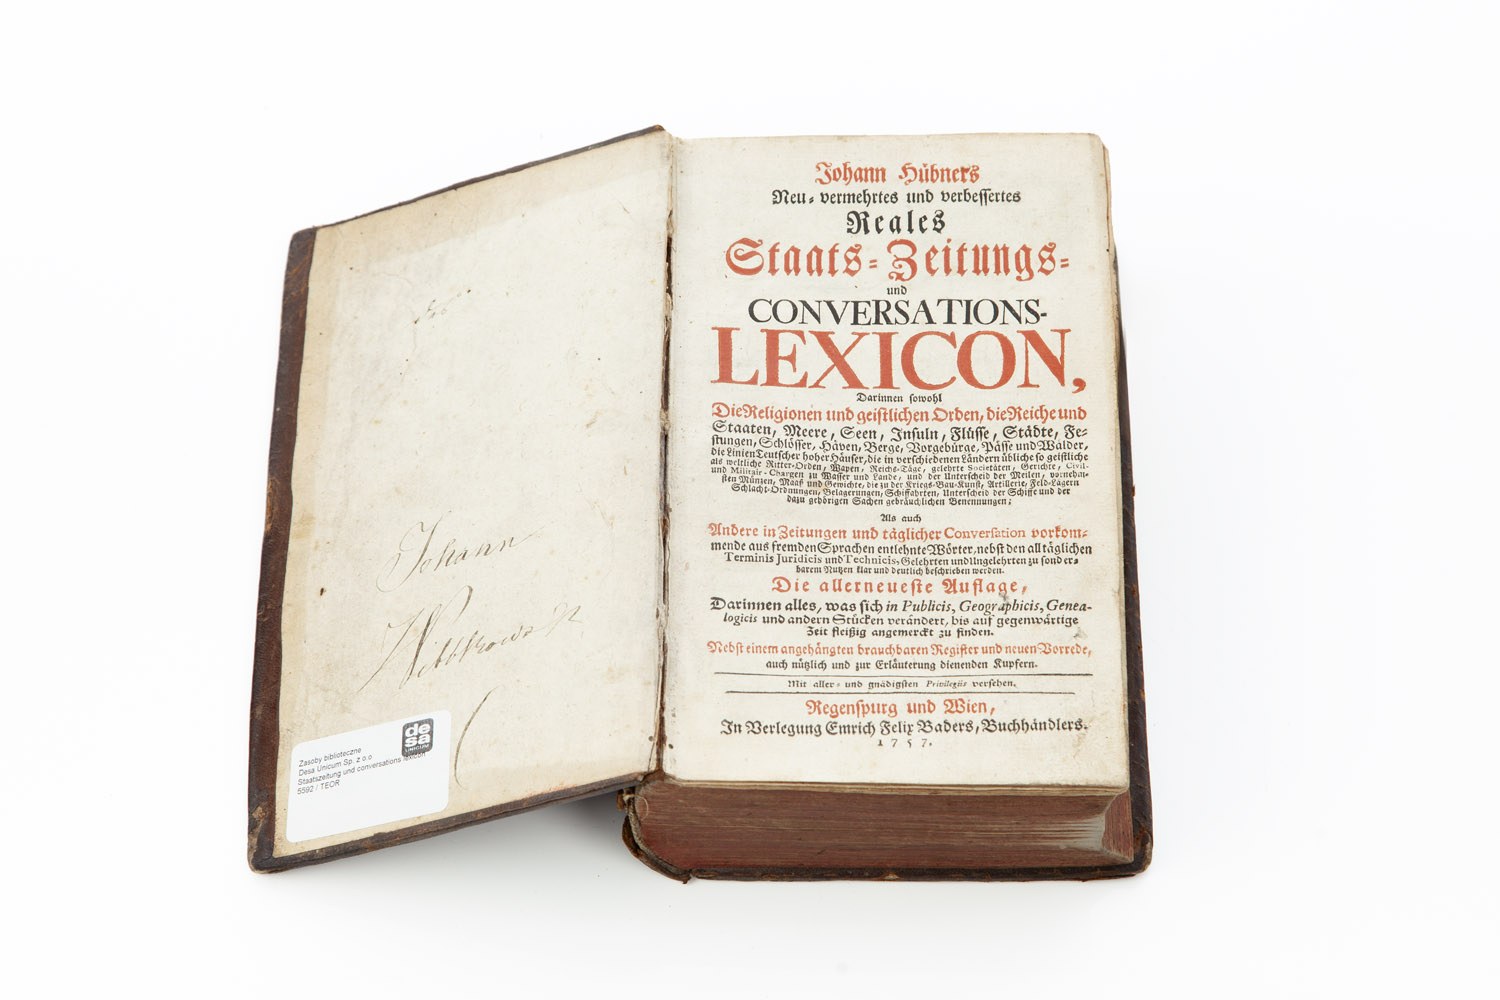 Johann
desa
UNICUM
Zasoby biblioteczne
Desa Unicum Sp. z o.o
Staatszeitung und conversations lexicon
5592 / TEOR
Johann Hübners
Neu-vermehrtes und verbessertes
Reales
Staats-Zeitungs-
und
CONVERSATIONS-
LEXICON,
Darinnen sowohl
Die Religionen und geistlichen Orden, die Reiche und
Staaten, Meere, Seen, Insuln, Flüsse, Städte, Fe-
stungen, Schlösser, Häven, Berge, Vorgebürge, Pässe und Wälder,
die Linien Teutscher hoher Häuser, die in verschiedenen Ländern übliche so geistliche
als weltliche Ritter-Orden, Wapen, Reichs-Täge, gelehrte Societäten, Gerichte, Civil-
und Militair-Chargen zu Wasser und Lande, und der Unterscheid der Meilen, vornehm-
sten Münzen, Maaß und Gewichte, die zu der Kriegs-Bau-Kunst, Artillerie, Feld-Lagern
Schlacht-Ordnungen, Belagerungen, Schiffahrten, Unterscheid der Schiffe und der
dazu gehörigen Sachen gebräuchlichen Benennungen;
Als auch
Andere in Zeitungen und täglicher Conversation vorkom-
mende aus fremden Sprachen entlehnte Wörter, nebst den alltäglichen
Terminis Juridicis und Technicis, Gelehrten und Ungelehrten zu sonder-
barem Nutzen klar und deutlich beschrieben werden.
Die allerneueste Auflage,
Darinnen alles, was sich in Publicis, Geographicis, Genea-
logicis und andern Stücken verändert, bis auf gegenwärtige
Zeit fleißig angemerckt zu finden.
Nebst einem angehängten brauchbaren Register und neuen Vorrede,
auch nützlich und zur Erläuterung dienenden Kupfern.
Mit aller- und gnädigsten Privilegiis versehen.
Regenspurg und Wien,
In Verlegung Emrich Felix Baders, Buchhändlers.
1757.